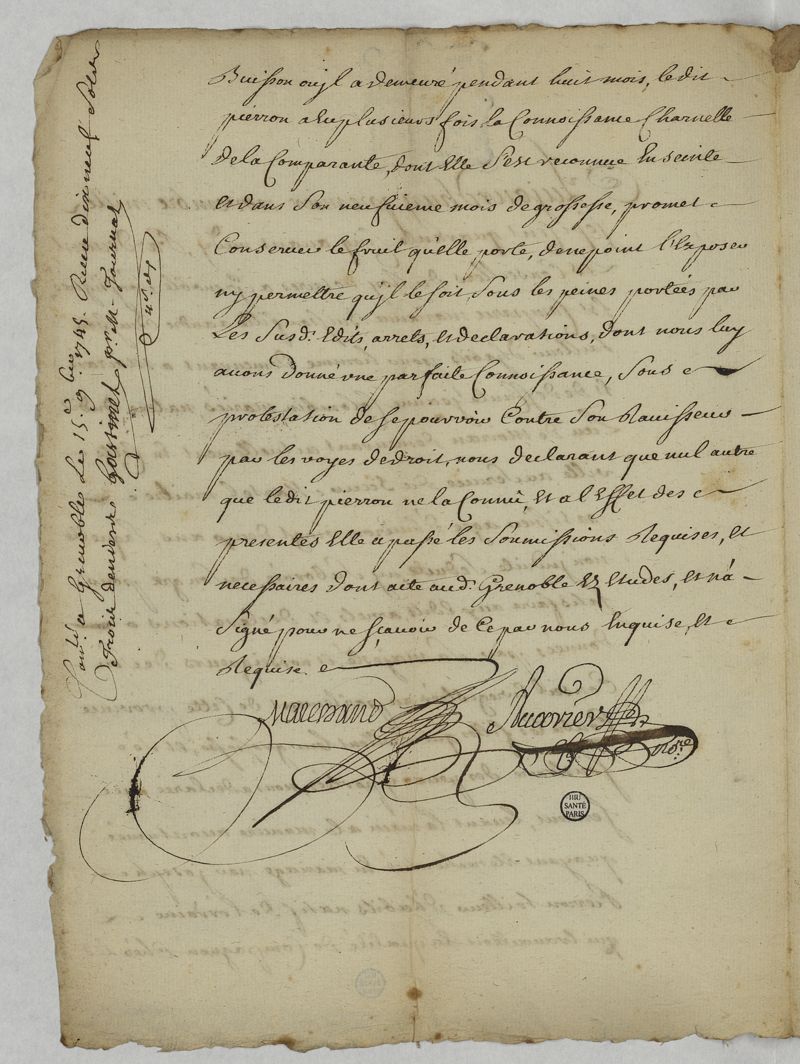 Buisson ou jl a demeuré pendant huit mois, le dit
pierron a Eu plusieurs fois la Connoissance Charnelle
de la Comparante, dont Elle s'est reconnue Enseinte
Et dans son neufvieme mois de grossesse, promet
Conserver le fruit qu'elle porte, de ne point l'Exposer
ny permettre qu'jl le soit, sous les peines portées par
Les susd. Edits, arrets, et declarations, dont nous luy
avons donné vne parfaite Connoissance, sous
protestation de se pourvoir Contre son Ravisseur
par les voyes de droit, nous declarant que nul autre
que le dit pierron ne la Connû, Et a l'Effet des
presentes Elle a passé les soumissions Requises, et
necessaires dont acte aud. Grenoble Ez Etudes, et n'a
signé pour ne sçavoir de Ce par nous Enquise, Et
Requise.
Marchand
nore
Contl. a Grenoble Le 15. 9bre 1745. Receu dix neuf Sols
trois deniers pr. M. Tournat
HIU
SANTÉ
PARIS